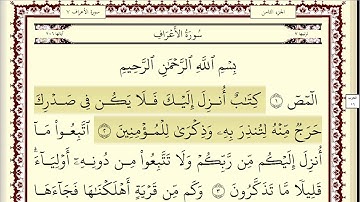 سُورَةُ الْأَعْرَافِ
بِسْمِ اللَّهِ الرَّحْمَٰنِ الرَّحِيمِ
الٓمٓصٓ ١ كِتَٰبٌ أُنزِلَ إِلَيْكَ فَلَا يَكُن فِي صَدْرِكَ
حَرَجٌ مِّنْهُ لِتُنذِرَ بِهِۦ وَذِكْرَىٰ لِلْمُؤْمِنِينَ ٢ اتَّبِعُوا۟ مَآ
أُنزِلَ إِلَيْكُم مِّن رَّبِّكُمْ وَلَا تَتَّبِعُوا۟ مِن دُونِهِۦٓ أَوْلِيَآءَ ۗ
قَلِيلًا مَّا تَذَكَّرُونَ ٣ وَكَم مِّن قَرْيَةٍ أَهْلَكْنَٰهَا فَجَآءَهَا